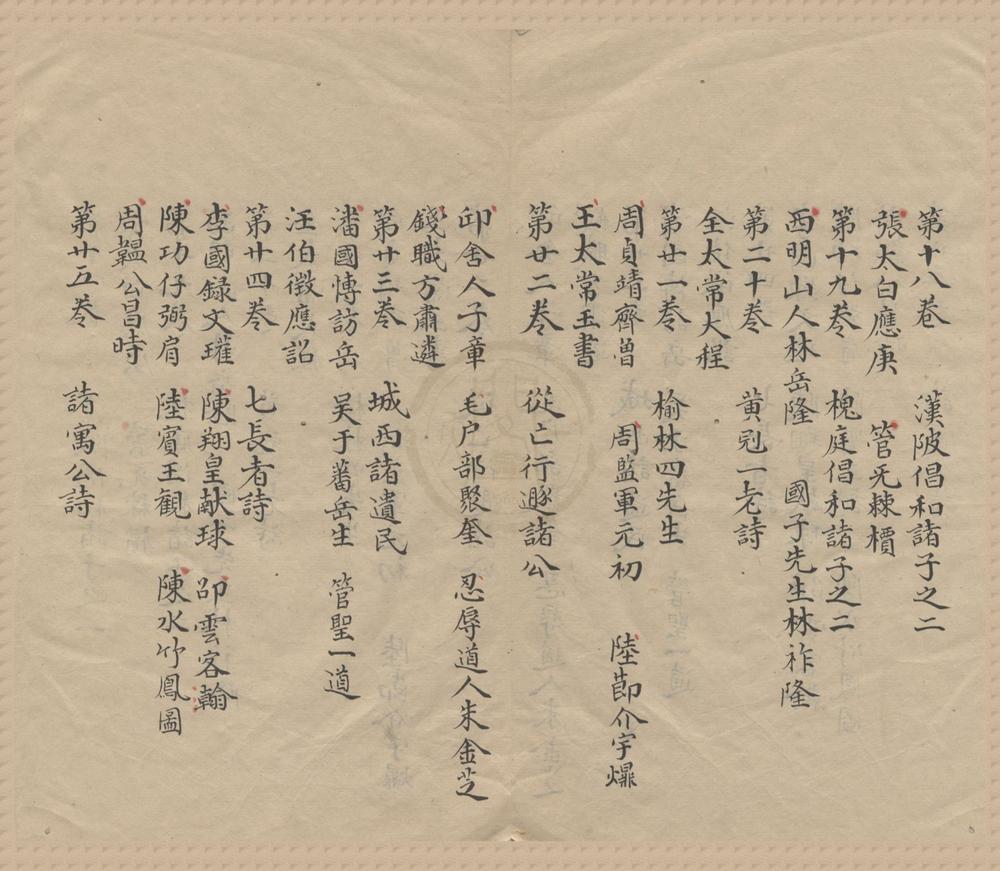 第十八巷 漢陂倡和諸子之二
張太白應庚 管无棘櫝
第十九卷 槐庭倡和諸子之二
西明山人林岳隆 國子先生林祚隆
第二十卷 黄剋一老詩
全太常大程
第廿一卷 榆林四先生
周貞靖齊曾 周監軍元初 陸莭介宇㸅
王太常玉書
第廿二卷 從亡行遯諸公
邱舍人子章 毛户部聚奎 忍辱道人朱金芝
錢職方肅遴
第廿三卷 城西諸遺民
潘國慱訪岳 吴于蕃岳生 管聖一道
汪伯徴應詔
第廿四卷 七長者詩
李國録文瓘 陳翔皇献球 邵雲客翰
陳功仔弼肩 陸賓王観 陳水竹鳳圖
周韞公昌時
第廿五卷 諸寓公詩